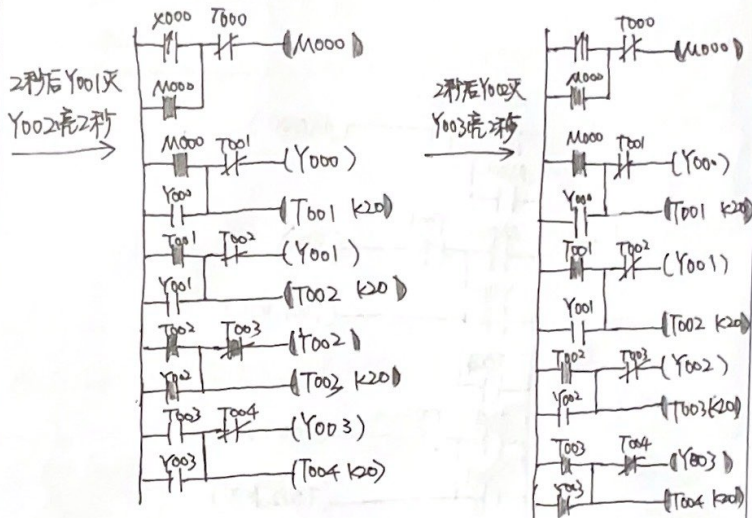 X000 T000
(M000)
M000
2秒后Y001灭
Y002亮2秒
M000 T001
(Y000)
Y000
(T001 K20)
T001 T002
(Y001)
Y001
(T002 K20)
T002 T003
(Y002)
Y002
(T003 K20)
T003 T004
(Y003)
Y003
(T004 K20)
T000
(M000)
M000
2秒后Y002灭
Y003亮2秒
M000 T001
(Y000)
Y000
(T001 K20)
T001 T002
(Y001)
Y001
(T002 K20)
T002 T003
(Y002)
Y002
(T003 K20)
T003 T004
(Y003)
Y003
(T004 K20)